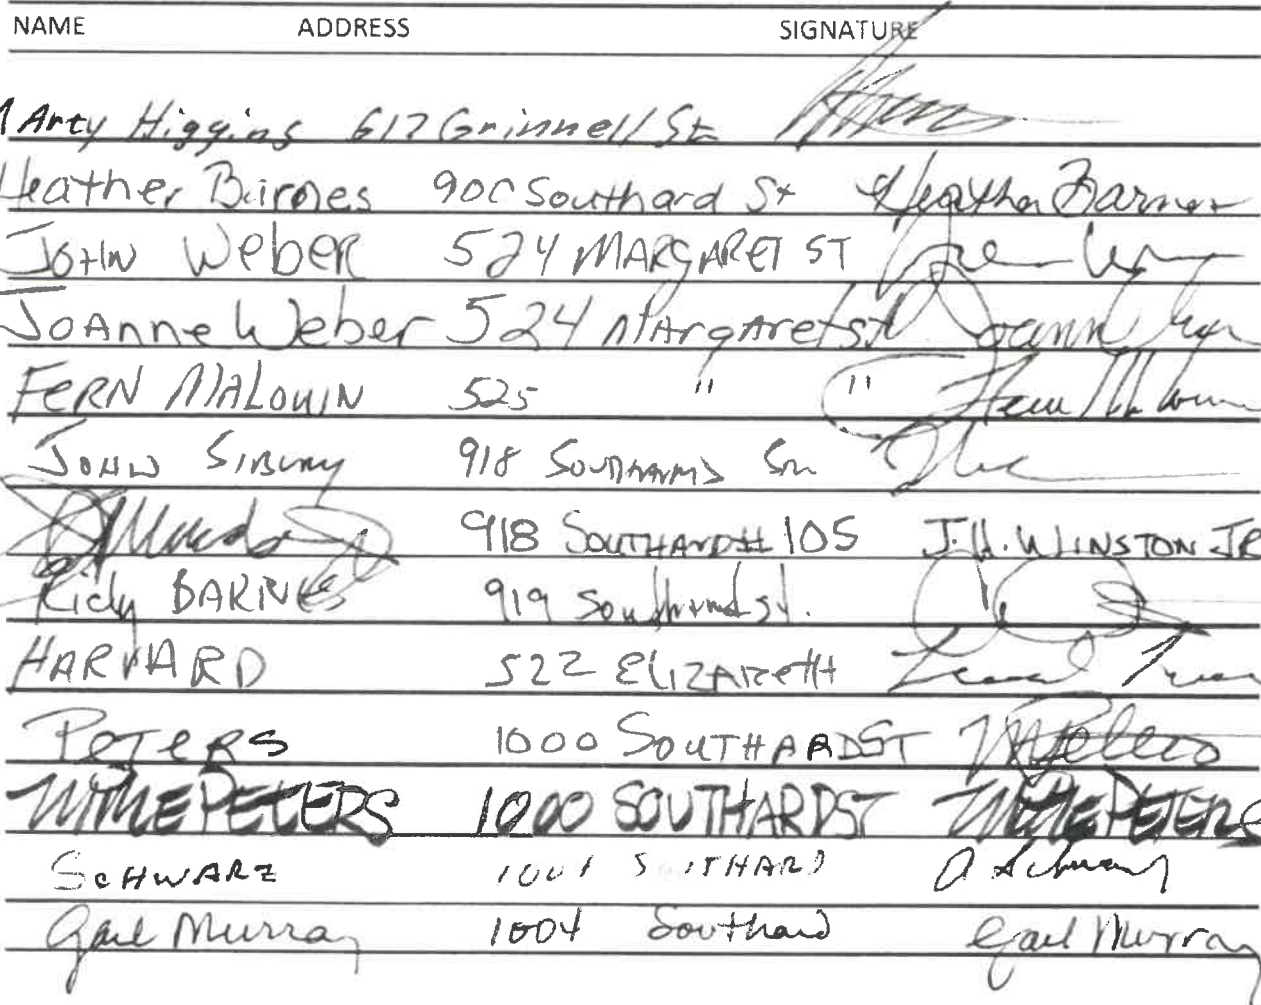 NAME ADDRESS SIGNATURE
Marty Higgins 617 Grinnell St
Heather Barnes 900 Southard St Heather Barnes
JOHN Weber 524 MARGARET ST
JoAnne Weber 524 Margaret st
FERN MALOUIN 525 " "
JOHN 918
918 SOUTHARD # 105 J.H. WINSTON JR
BARNES 919 Southard st.
HARVARD 522 ELIZABETH
PETERS 1000 SOUTHARD ST
PETERS 1000 SOUTHARD ST PETERS
SCHWARZ 1001 SOUTHARD
Gail Murray 1004 Southard Gail Murray